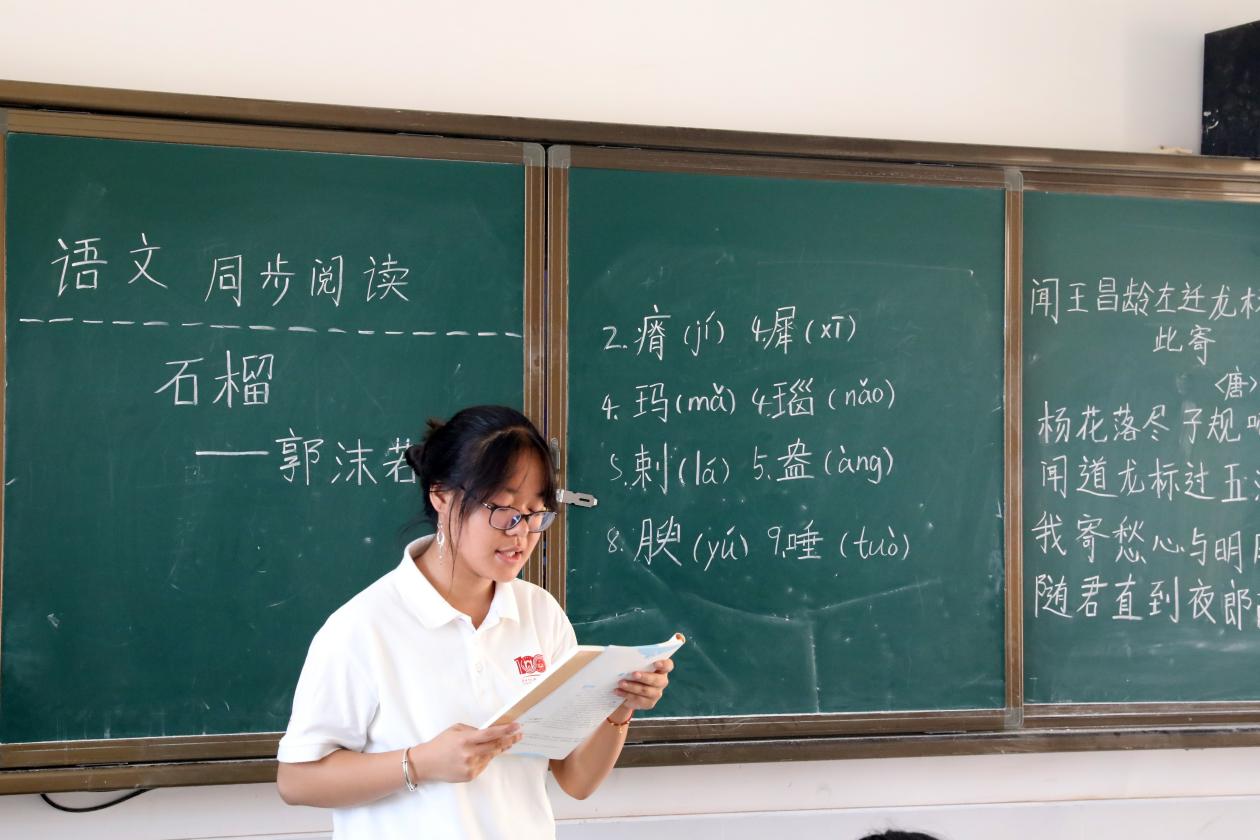 语文 同步阅读
石榴
——郭沫若
2.瘠(jí) 4.犀(xī)
4.玛(mǎ) 4.瑙(nǎo)
5.剌(lá) 5.盎(àng)
8.腴(yú) 9.唾(tuò)
闻王昌龄左迁龙标
此寄
<唐>
杨花落尽子规
闻道龙标过五
我寄愁心与明
随君直到夜郎
100